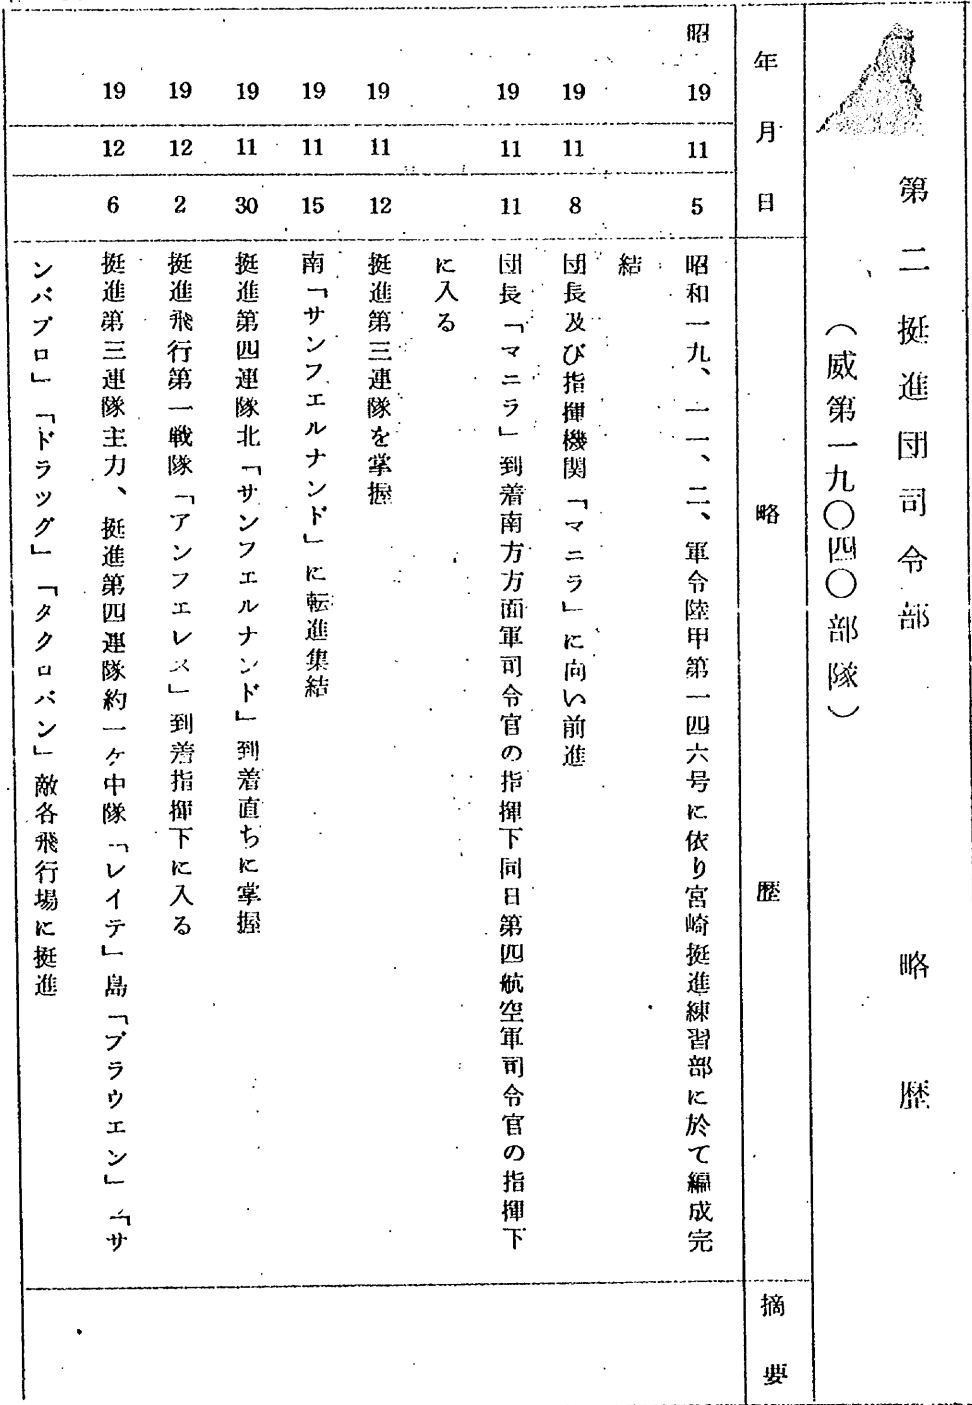 第二挺進団司令部　略歴
（威第一九〇四〇部隊）
年月日　略歴　摘要
昭19 11 5 昭和一九、一一、二、軍令陸甲第一四六号に依り宮崎挺進練習部に於て編成完
結
19 11 8 団長及び指揮機関「マニラ」に向い前進
19 11 11 団長「マニラ」到着南方方面軍司令官の指揮下同日第四航空軍司令官の指揮下
に入る
19 11 12 挺進第三連隊を掌握
19 11 15 南「サンフエルナンド」に転進集結
19 11 30 挺進第四連隊北「サンフエルナンド」到着直ちに掌握
19 12 2 挺進飛行第一戦隊「アンフエレス」到着指揮下に入る
19 12 6 挺進第三連隊主力、挺進第四連隊約一ヶ中隊「レイテ」島「ブラウエン」「サ
ンパブロ」「ドラッグ」「タクロバン」敵各飛行場に挺進